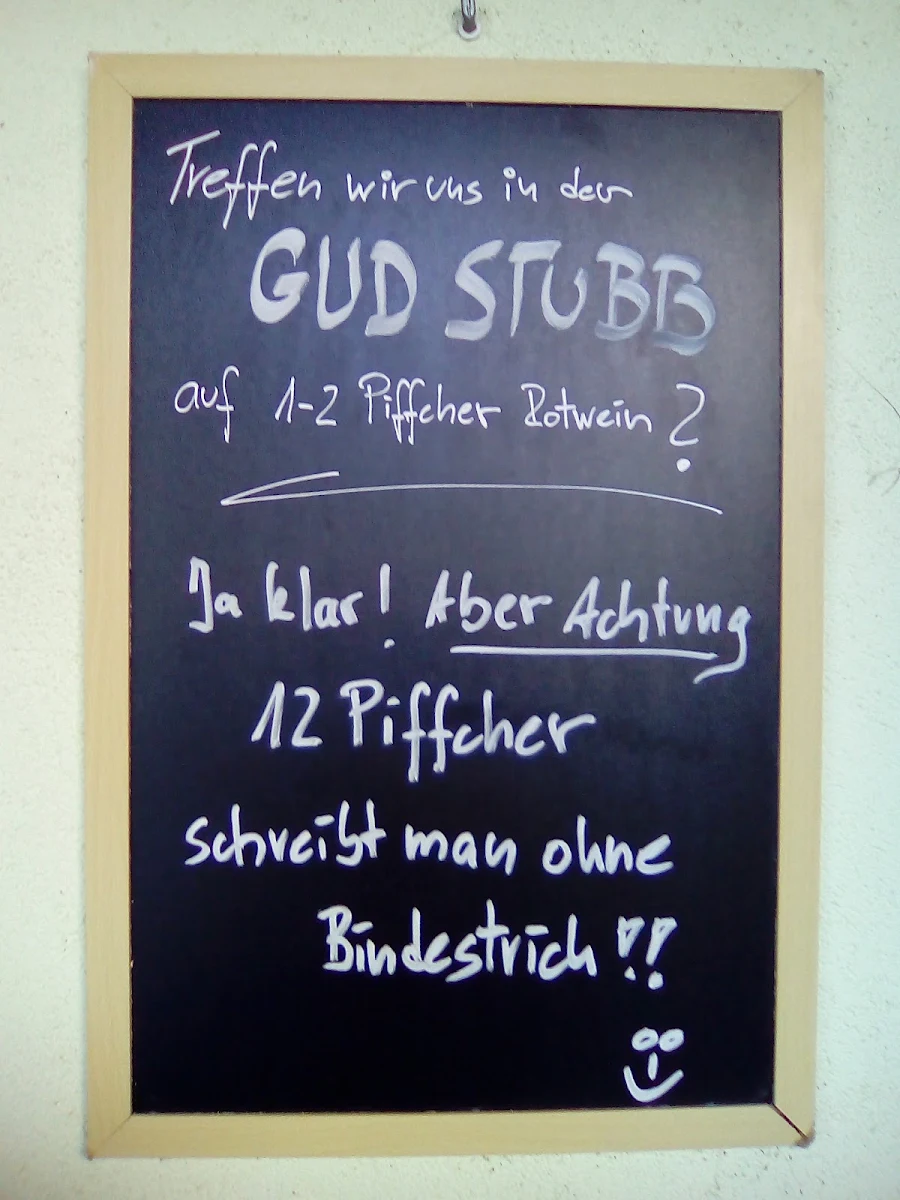 Treffen wir uns in der
GUD STUBB
auf 1-2 Piffcher Rotwein?
Ja klar! Aber Achtung
12 Piffcher
schreibt man ohne
Bindestrich!!